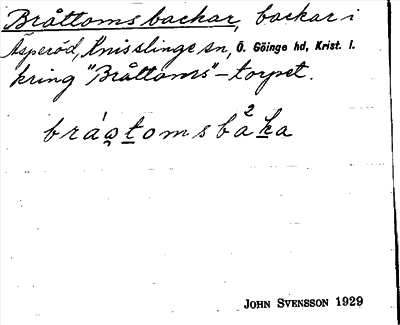 Bråttoms backar, backar i
Åsperöd, Knisslinge sn, Ö. Göinge hd, Krist. l.
kring "Bråttoms"-torpet.
bráo̜tomsbàka
JOHN SVENSSON 1929